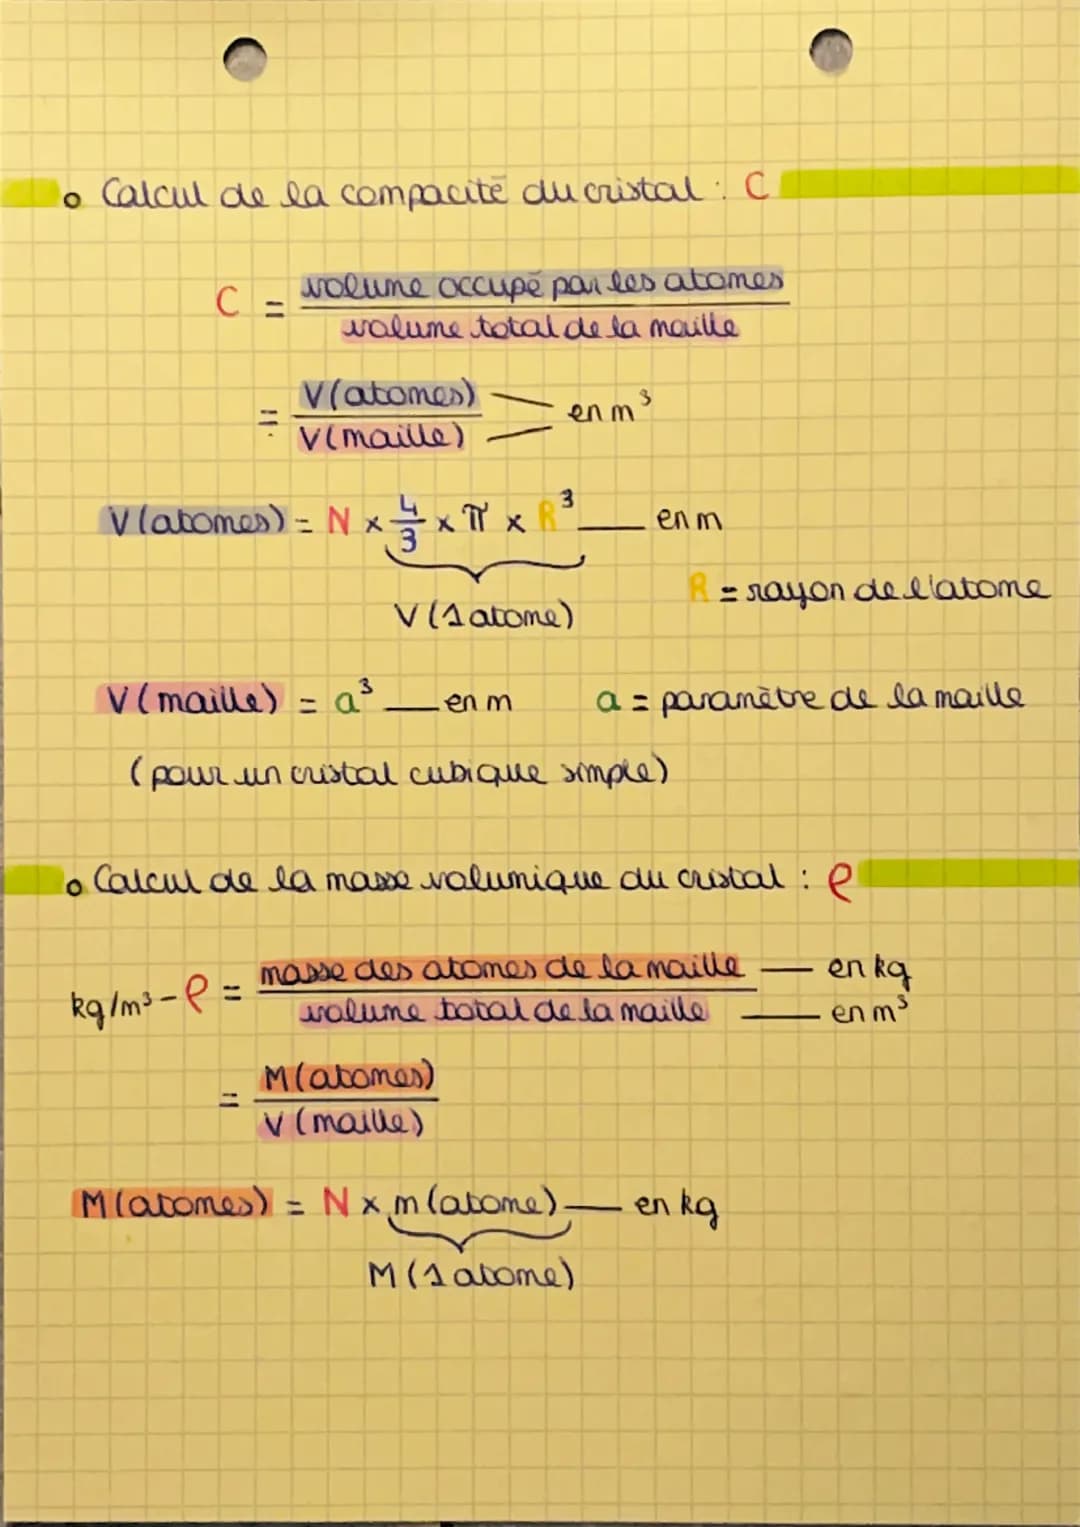 • Calcul de la compacité du cristal : C
C = volume occupé par les atomes
volume total de la maille
= V(atomes)
V(maille) en m³
V(atomes) = N × 4/3 × π × R³ en m
V(1 atome)
R = rayon de l'atome
V(maille) = a³ en m a = paramètre de la maille
(pour un cristal cubique simple)
• Calcul de la masse volumique du cristal : ρ
kg/m³ - ρ = masse des atomes de la maille en kg
volume total de la maille en m³
= M(atomes)
V(maille)
M(atomes) = N × m(atome) en kg
M(1 atome)